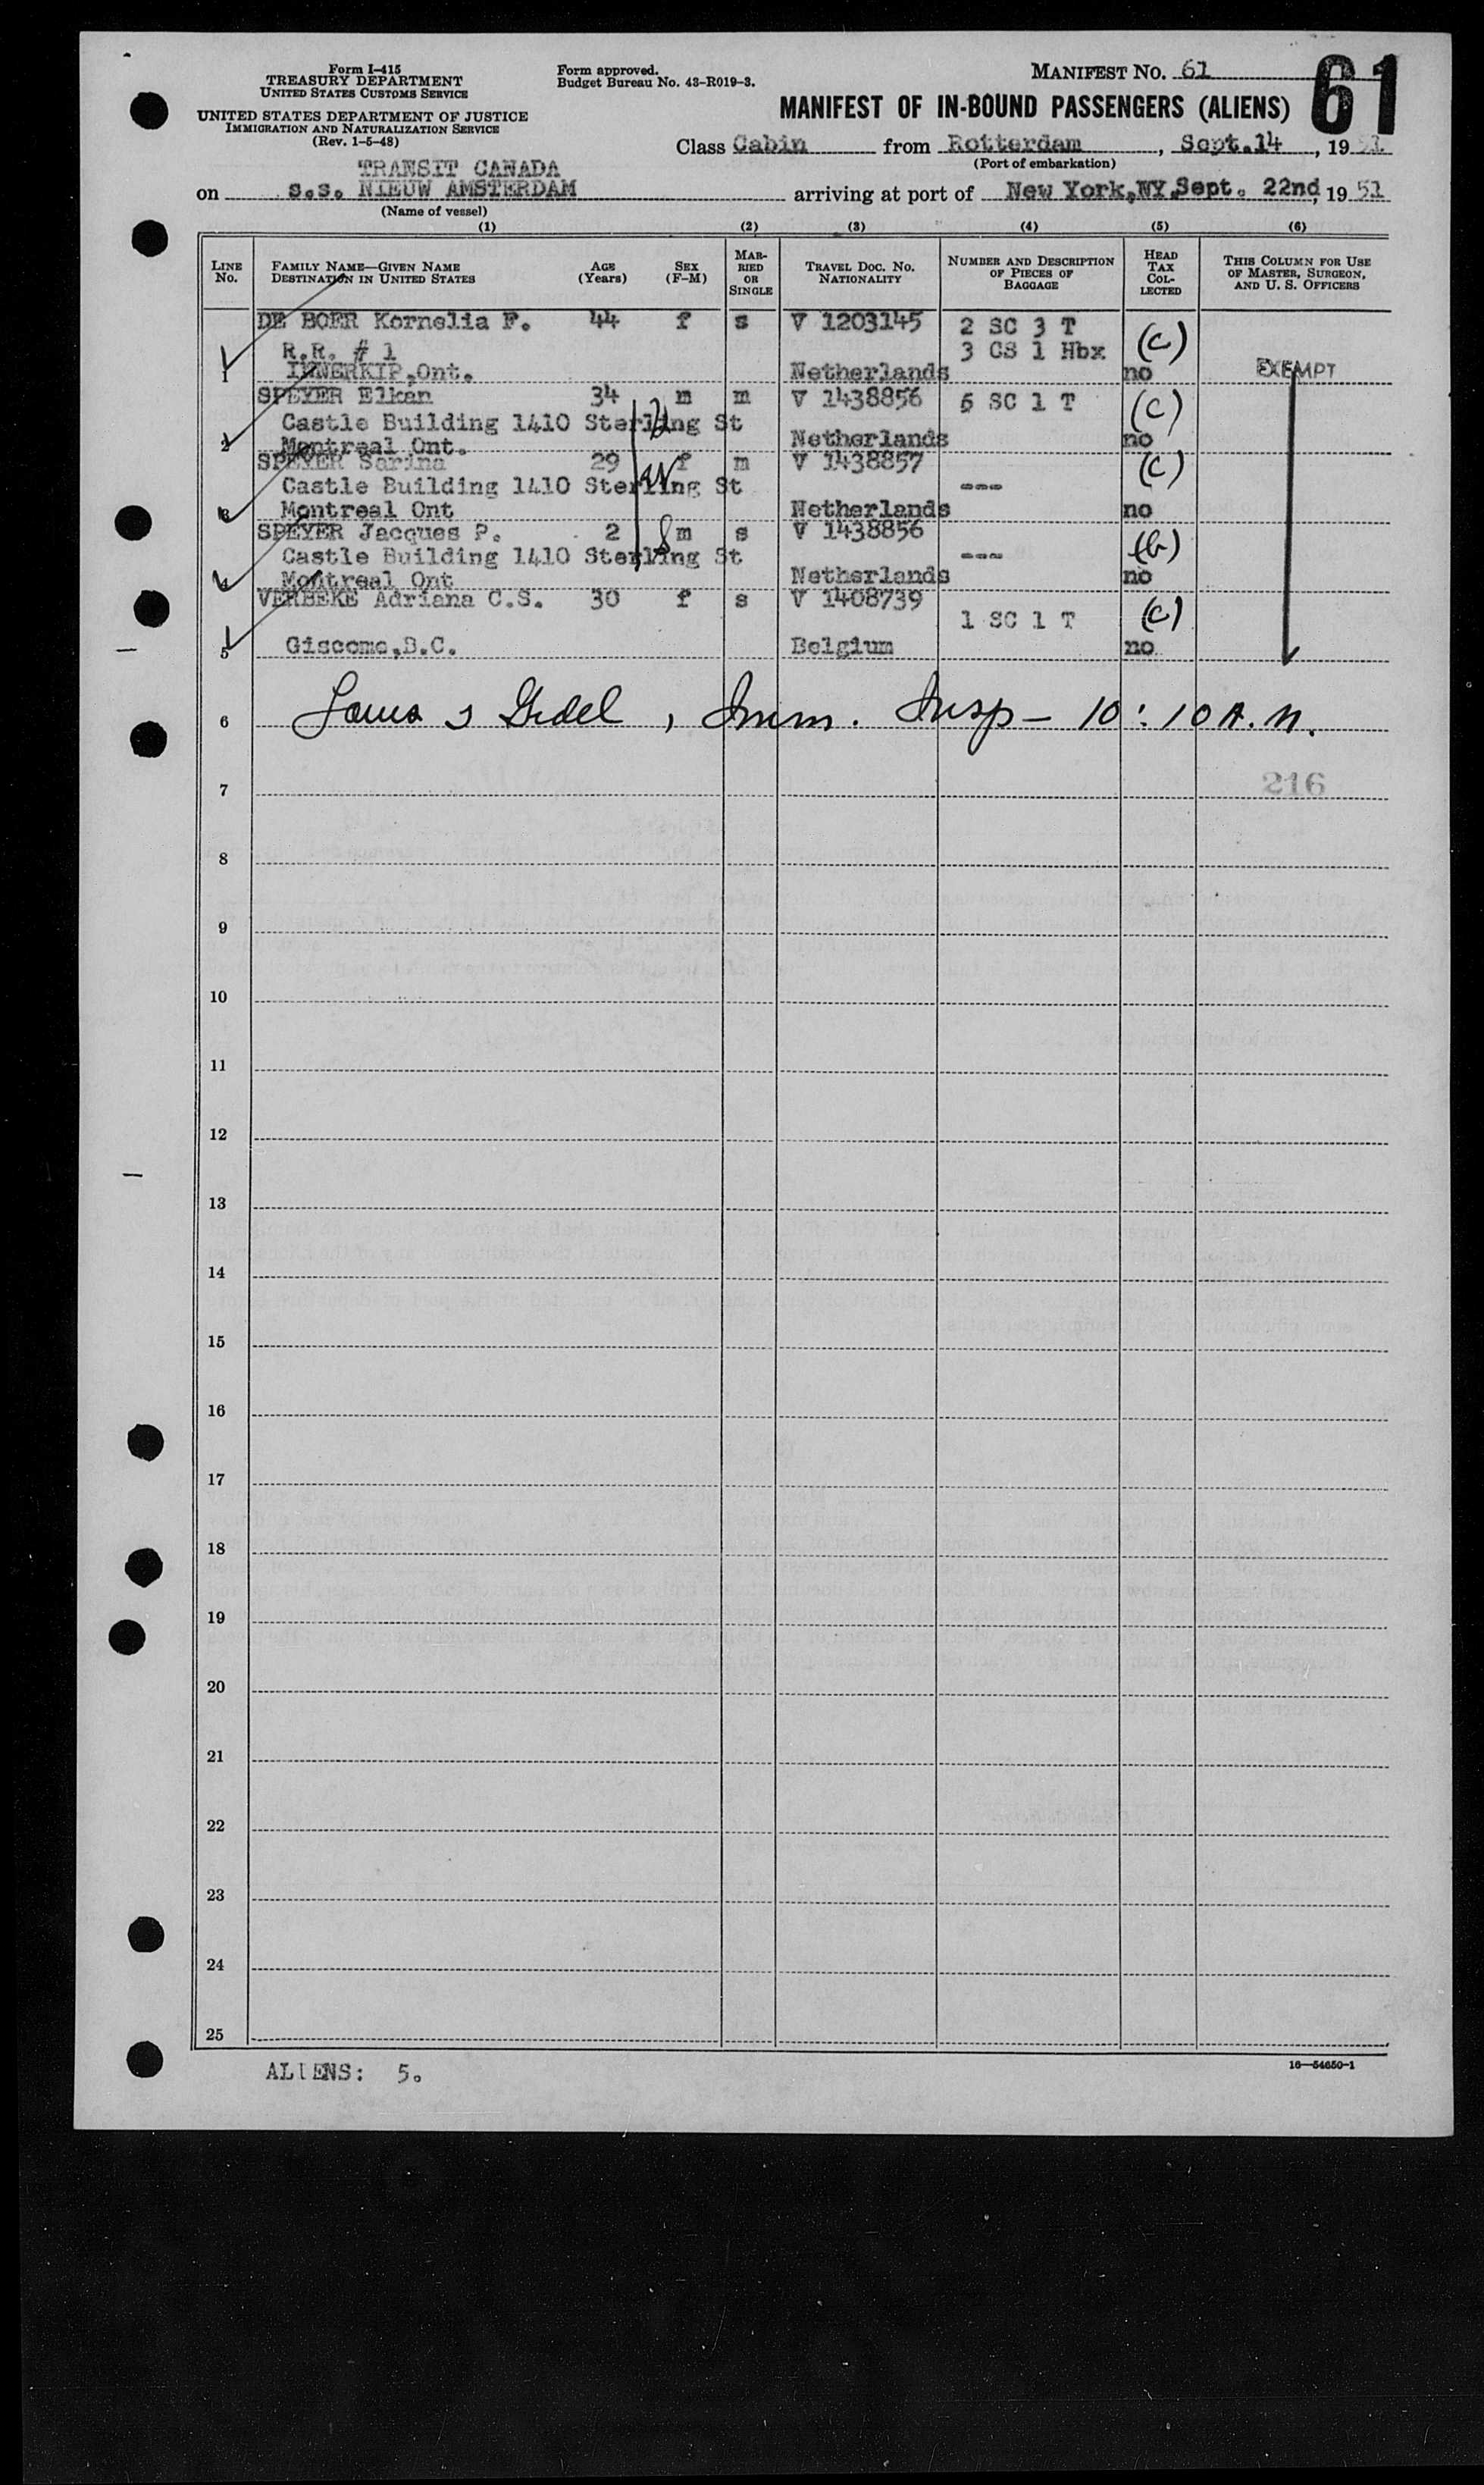 Form I-415
TREASURY DEPARTMENT
UNITED STATES CUSTOMS SERVICE
UNITED STATES DEPARTMENT OF JUSTICE
IMMIGRATION AND NATURALIZATION SERVICE
(Rev. 1-5-48)
Form approved.
Budget Bureau No. 43-R019-3.
MANIFEST NO. 61
61
MANIFEST OF IN-BOUND PASSENGERS (ALIENS)
Class Cabin from Rotterdam, Sept.14, 1951
(Port of embarkation)
TRANSIT CANADA
on s.s. NIEUW AMSTERDAM arriving at port of New York,NY Sept. 22nd, 1951
(Name of vessel)
(1) (2) (3) (4) (5) (6)
LINE No. FAMILY NAME—GIVEN NAME DESTINATION IN UNITED STATES AGE (Years) SEX (F-M) MARRIED OR SINGLE TRAVEL DOC. NO. NATIONALITY NUMBER AND DESCRIPTION OF PIECES OF BAGGAGE HEAD TAX COLLECTED THIS COLUMN FOR USE OF MASTER, SURGEON, AND U. S. OFFICERS
DE BOER Kornelia F. 44 f s V 1203145 2 SC 3 T
R.R. # 1 3 CS 1 Hbx (c)
1 INNERKIP,Ont. Netherlands no EXEMPT
SPEYER Elkan 34 m m V 1438856 6 SC 1 T (c)
Castle Building 1410 Sterling St
2 Montreal Ont. Netherlands no
SPEYER Sarina 29 f m V 1438857 (c)
Castle Building 1410 Sterling St ---
3 Montreal Ont Netherlands no
SPEYER Jacques P. 2 m s V 1438856 (b)
Castle Building 1410 Sterling St ---
4 Montreal Ont Netherlands no
VERBEKE Adriana C.S. 30 f s V 1408739
1 SC 1 T (c)
5 Giscome,B.C. Belgium no
6 , Imm. Insp - 10:10 A.M.
7 216
8
9
10
11
12
13
14
15
16
17
18
19
20
21
22
23
24
25
ALIENS: 5.
16—54650-1